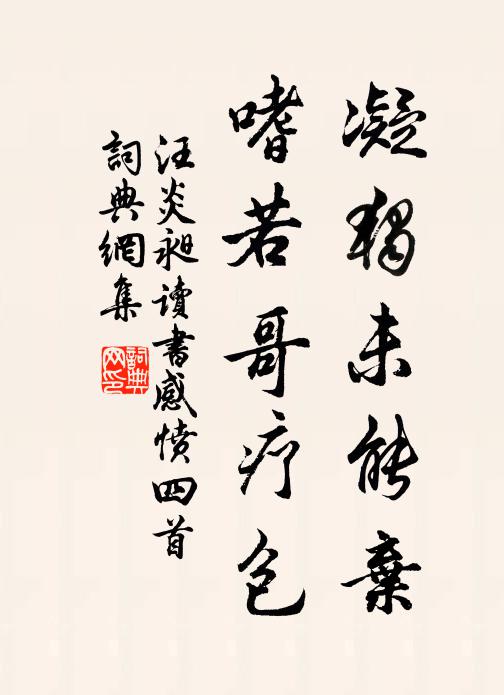 凝獨未能棄
嗜若哥疗色
汪炎昶讀書感憤四首
詞典網集
詞典網印